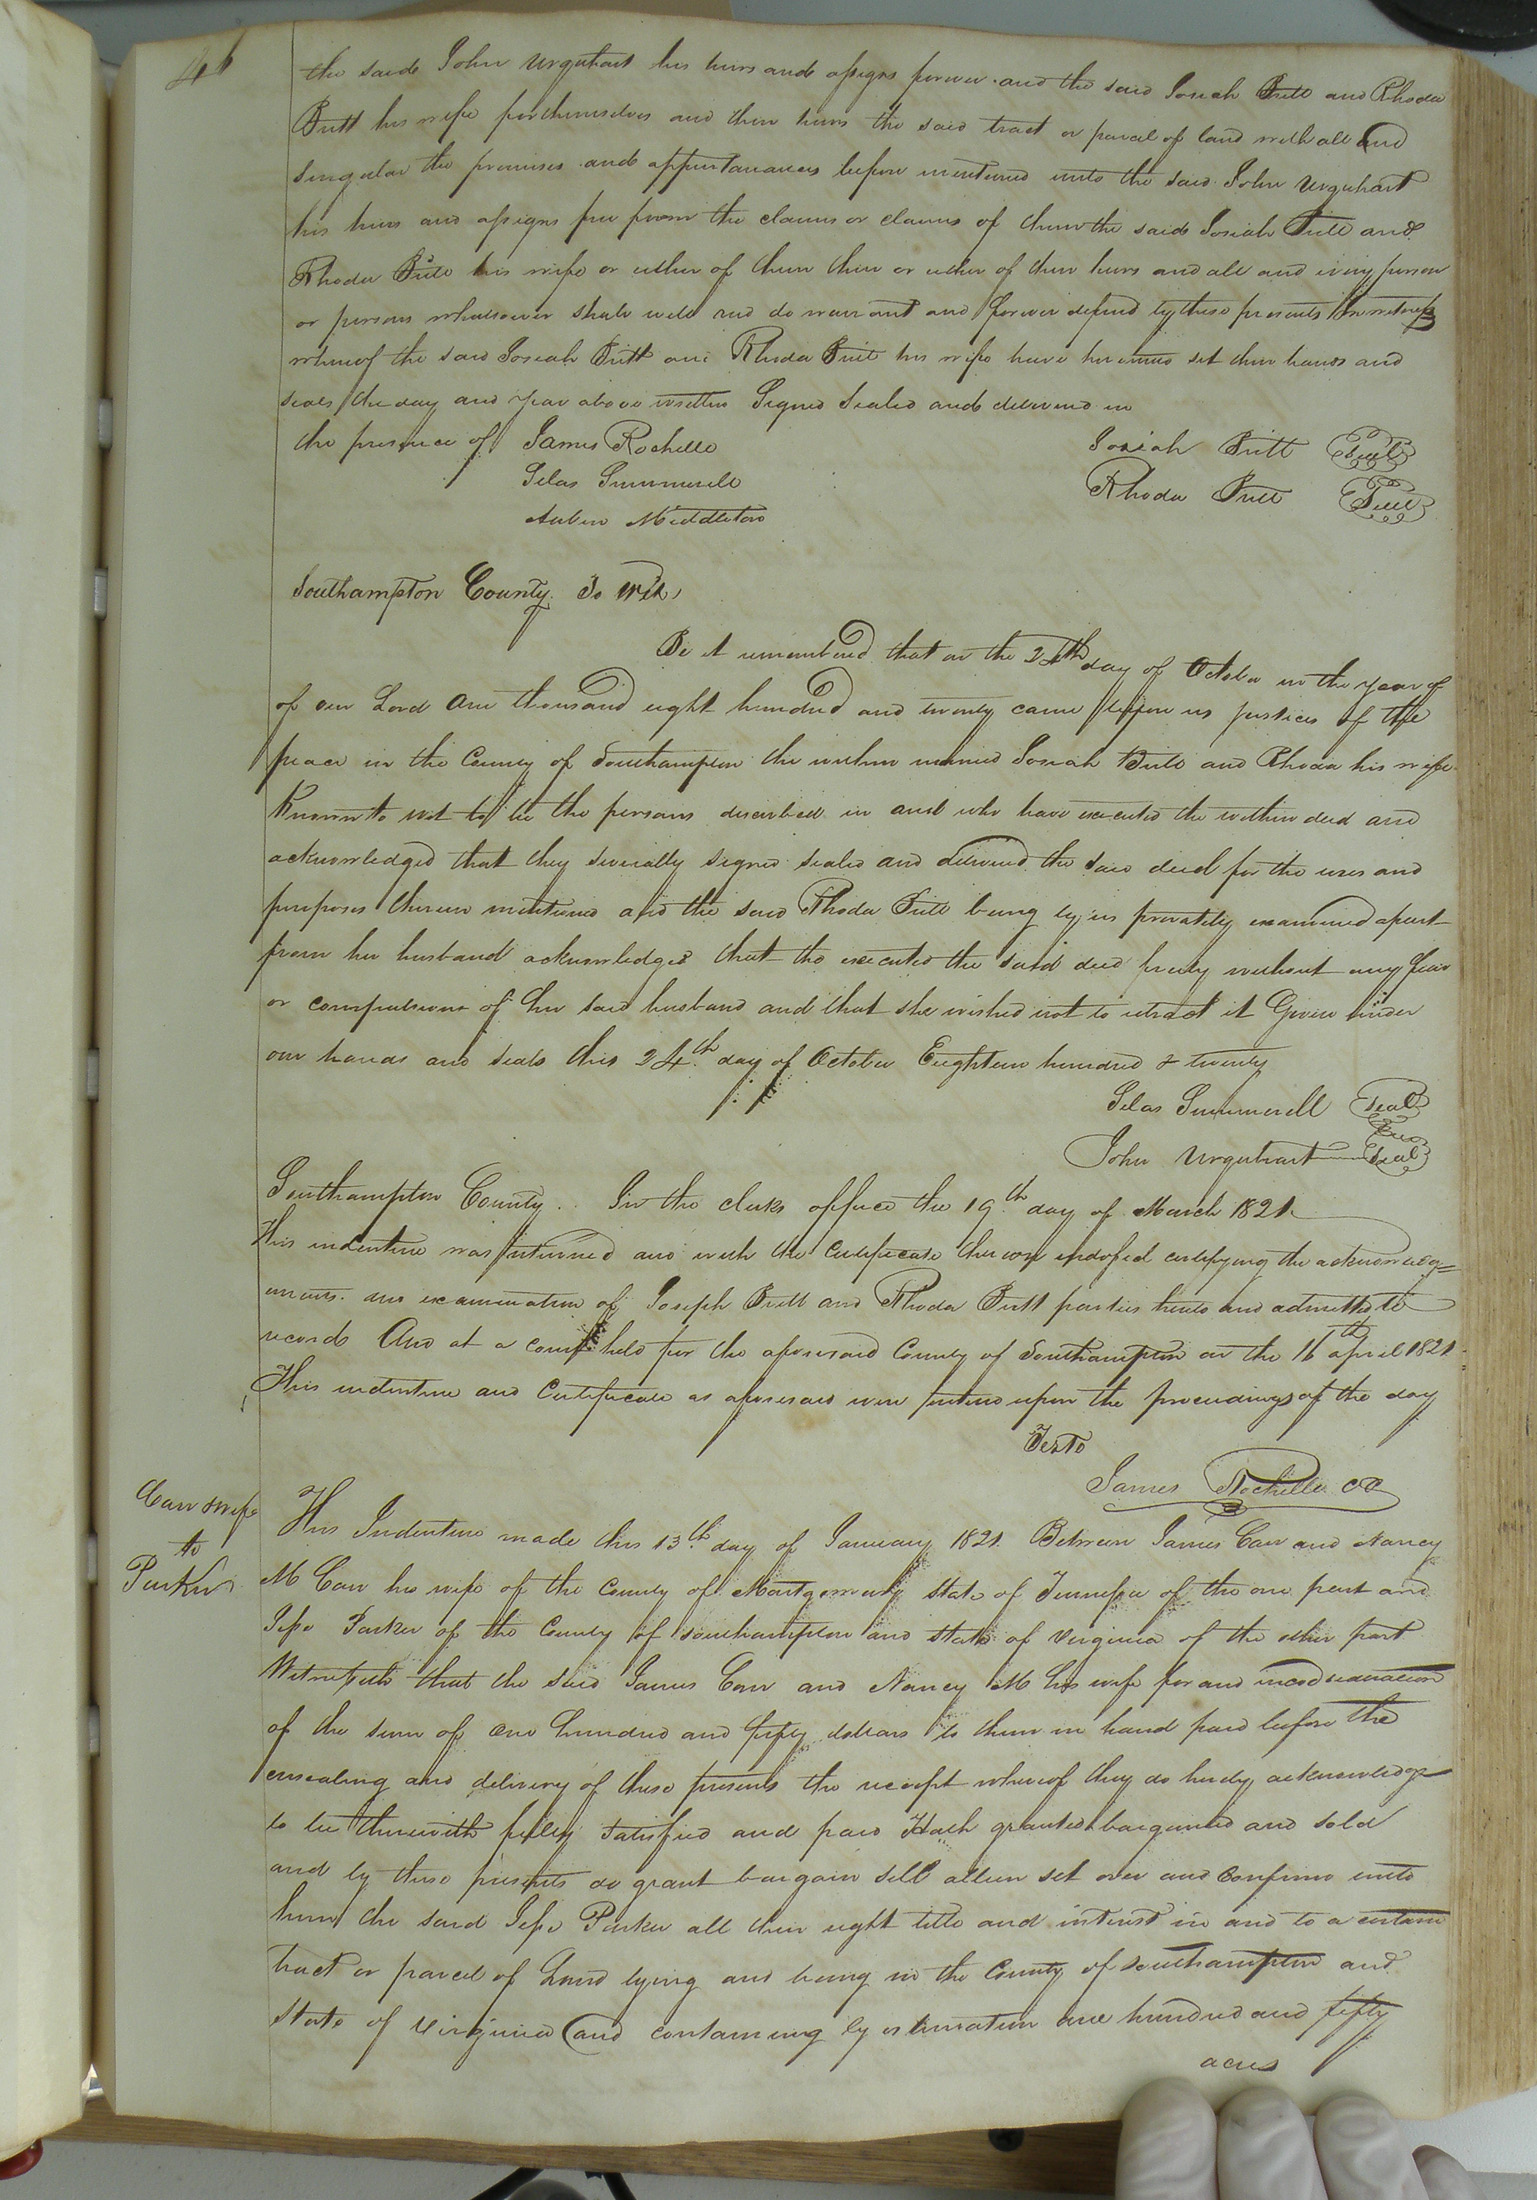 46
the said John Urquhart his heirs and assigns forever and the said Josiah Britt and Rhoda
Britt his wife for themselves and their heirs the said tract or parcel of land with all and
singular the premises and appurtanances before mentioned unto the said John Urquhart
his heirs and assigns free from the claims or claims of them the said Josiah Britt and
Rhoda Britt his wife or either of them their or either of their heirs and all and every person
or persons whatsoever shall will and do warrant and forever defend by these presents In witness
whereof the said Josiah Britt and Rhoda Britt his wife have hereunto set their hands and
seals the day and year above written Signed Sealed and delivered in
the presence of James Rochelle Josiah Britt Seal
Silas Summerell Rhoda Britt Seal
Middleton
Southampton County To Wit,
Be it remembered that on the 24th day of October in the year of
of our Lord One thousand eight hundred and twenty came before us justices of the
peace in the County of Southampton the within named Josiah Britt and Rhoda his wife
Known to us to be the persons described in and who have executed the within deed and
acknowledged that they severally signed sealed and delivered the said deed for the uses and
purposes therein mentioned and the said Rhoda Britt being by us privately examined apart
from her husband acknowledged that she executed the said deed freely without any fear
or compulsion of her said husband and that she wished not to retract it Given under
our hands and seals this 24th day of October Eighteen hundred & twenty
Silas Summerell Seal
John Urquhart Seal
Southampton County. In the clerks office the 19th day of March 1821
This indenture was returned and with the Certificate thereon endorsed certifying the acknowledg=
ments and examination of Joseph Britt and Rhoda Britt parties hereto and admitted to
record And at a court held for the aforesaid County of Southampton on the 16th April 1821
This indenture and Certificate as aforesaid were entered upon the proceedings of the day
Teste
James Rochelle CC
Carr & wife
to
Parker
This Indenture made this 13th day of January 1821 Between James Carr and Nancy
M Carr his wife of the County of Montgomery State of Tennessee of the one part and
Jesse Parker of the County of Southampton and State of Virginia of the other part
Witnesseth that the said James Carr and Nancy M his wife for and in consideration
of the sum of One hundred and fifty dollars to them in hand paid before the
ensealing and delivery of these presents the receipt whereof they do hereby acknowledge
to be therewith fully satisfied and paid Hath granted bargained and sold
and by these presents do grant bargain sell alien set over and Confirm unto
him the said Jesse Parker all their right title and interest in and to a certain
tract or parcel of Land lying and being in the County of Southampton and
State of Virginia and containing by estimation one hundred and fifty
acres